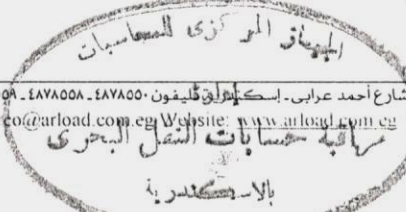 الجهاز المركزى للمحاسبات
شارع أحمد عرابى - إسكندرية تليفون ٤٨٧٨٥٥٠ـ٤٨٧٨٥٥٨ـ٥٩
co@arload.com.eg Website: www.arload.com.eg
مراقبة حسابات النقل البحرى
بالاسكندرية